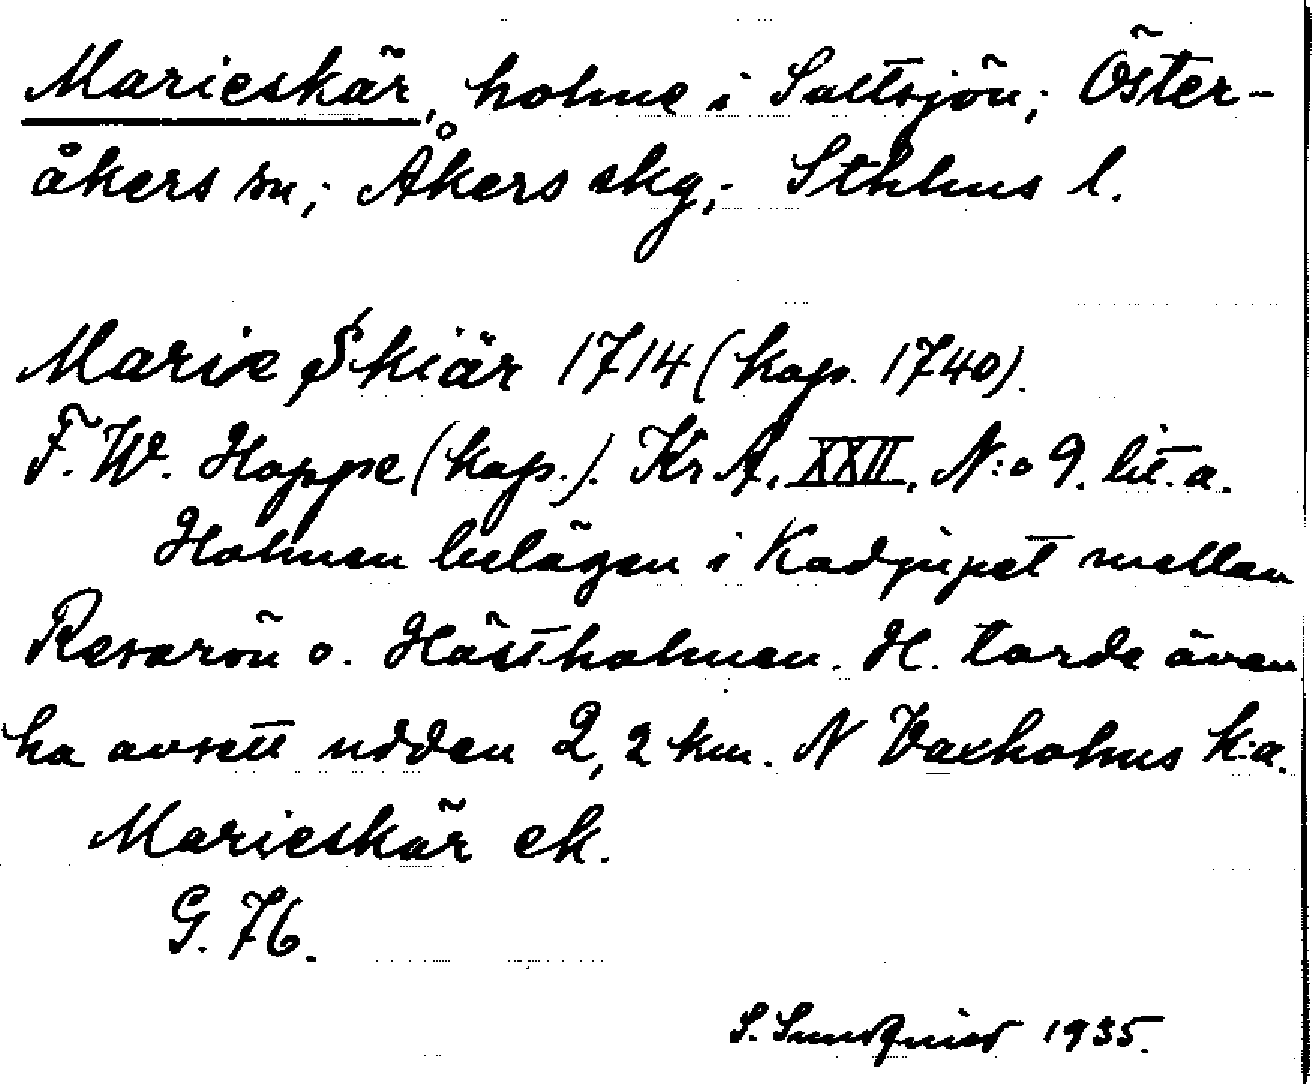 Marieskär, holme i Saltsjön; Öster-
åkers sn; Åkers skg; Sthlms l.
Marie Skiär 1714 (kop. 1740).
F. W. Hoppe (kop.). Kr A. XXII, N:o 9. lit. a.
Holmen belägen i Kodjupet mellan
Resarön o. Hästholmen. H. torde även
ha avsett udden 2,2 km. N Vaxholms k:a.
Marieskär ek.
G. 76.
S. Sundquist 1935.